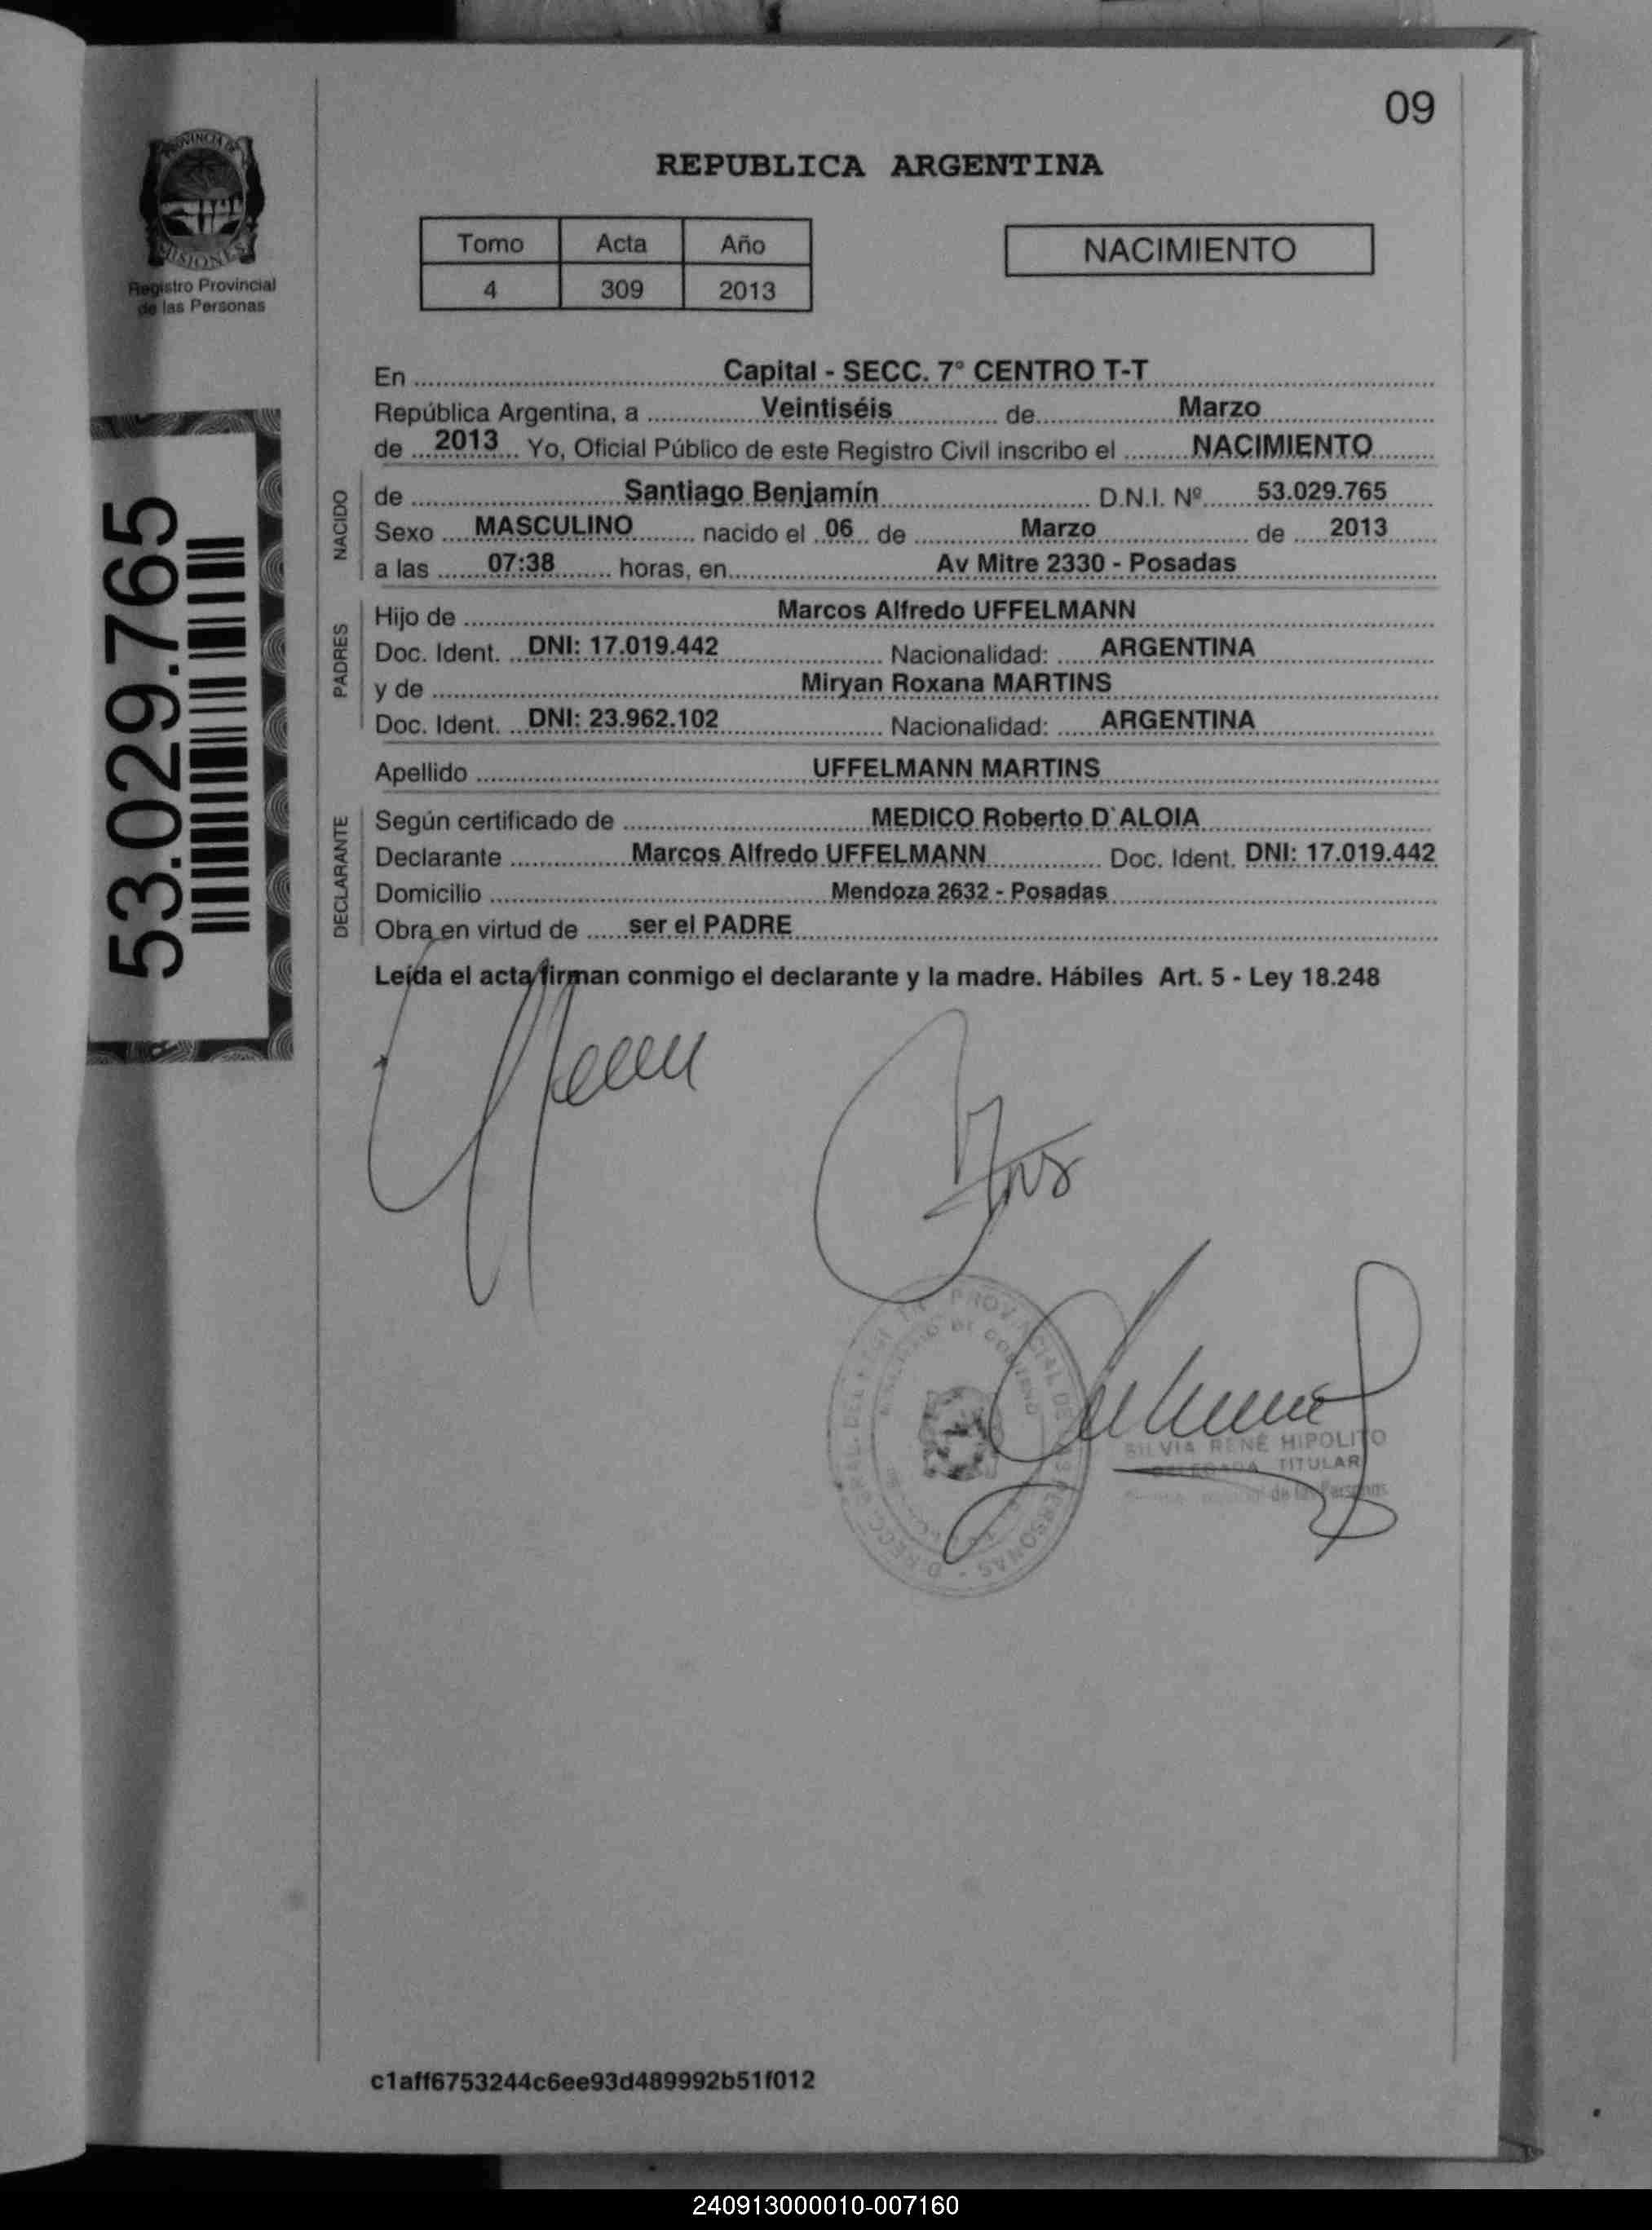 09
PROVINCIA DE
MISIONES
Registro Provincial
de las Personas
REPUBLICA ARGENTINA
Tomo Acta Año
4 309 2013
NACIMIENTO
53.029.765
En Capital - SECC. 7° CENTRO T-T
República Argentina, a Veintiséis de Marzo
de 2013 Yo, Oficial Público de este Registro Civil inscribo el NACIMIENTO
NACIDO
de Santiago Benjamín D.N.I. Nº 53.029.765
Sexo MASCULINO nacido el 06 de Marzo de 2013
a las 07:38 horas, en Av Mitre 2330 - Posadas
PADRES
Hijo de Marcos Alfredo UFFELMANN
Doc. Ident. DNI: 17.019.442 Nacionalidad: ARGENTINA
y de Miryan Roxana MARTINS
Doc. Ident. DNI: 23.962.102 Nacionalidad: ARGENTINA
Apellido UFFELMANN MARTINS
DECLARANTE
Según certificado de MEDICO Roberto D`ALOIA
Declarante Marcos Alfredo UFFELMANN Doc. Ident. DNI: 17.019.442
Domicilio Mendoza 2632 - Posadas
Obra en virtud de ser el PADRE
Leída el acta firman conmigo el declarante y la madre. Hábiles Art. 5 - Ley 18.248
PROVINCIAL DE LAS PERSONAS
SILVIA RENÉ HIPOLITO
DELEGADA TITULAR
de las Personas
c1aff6753244c6ee93d489992b51f012
240913000010-007160